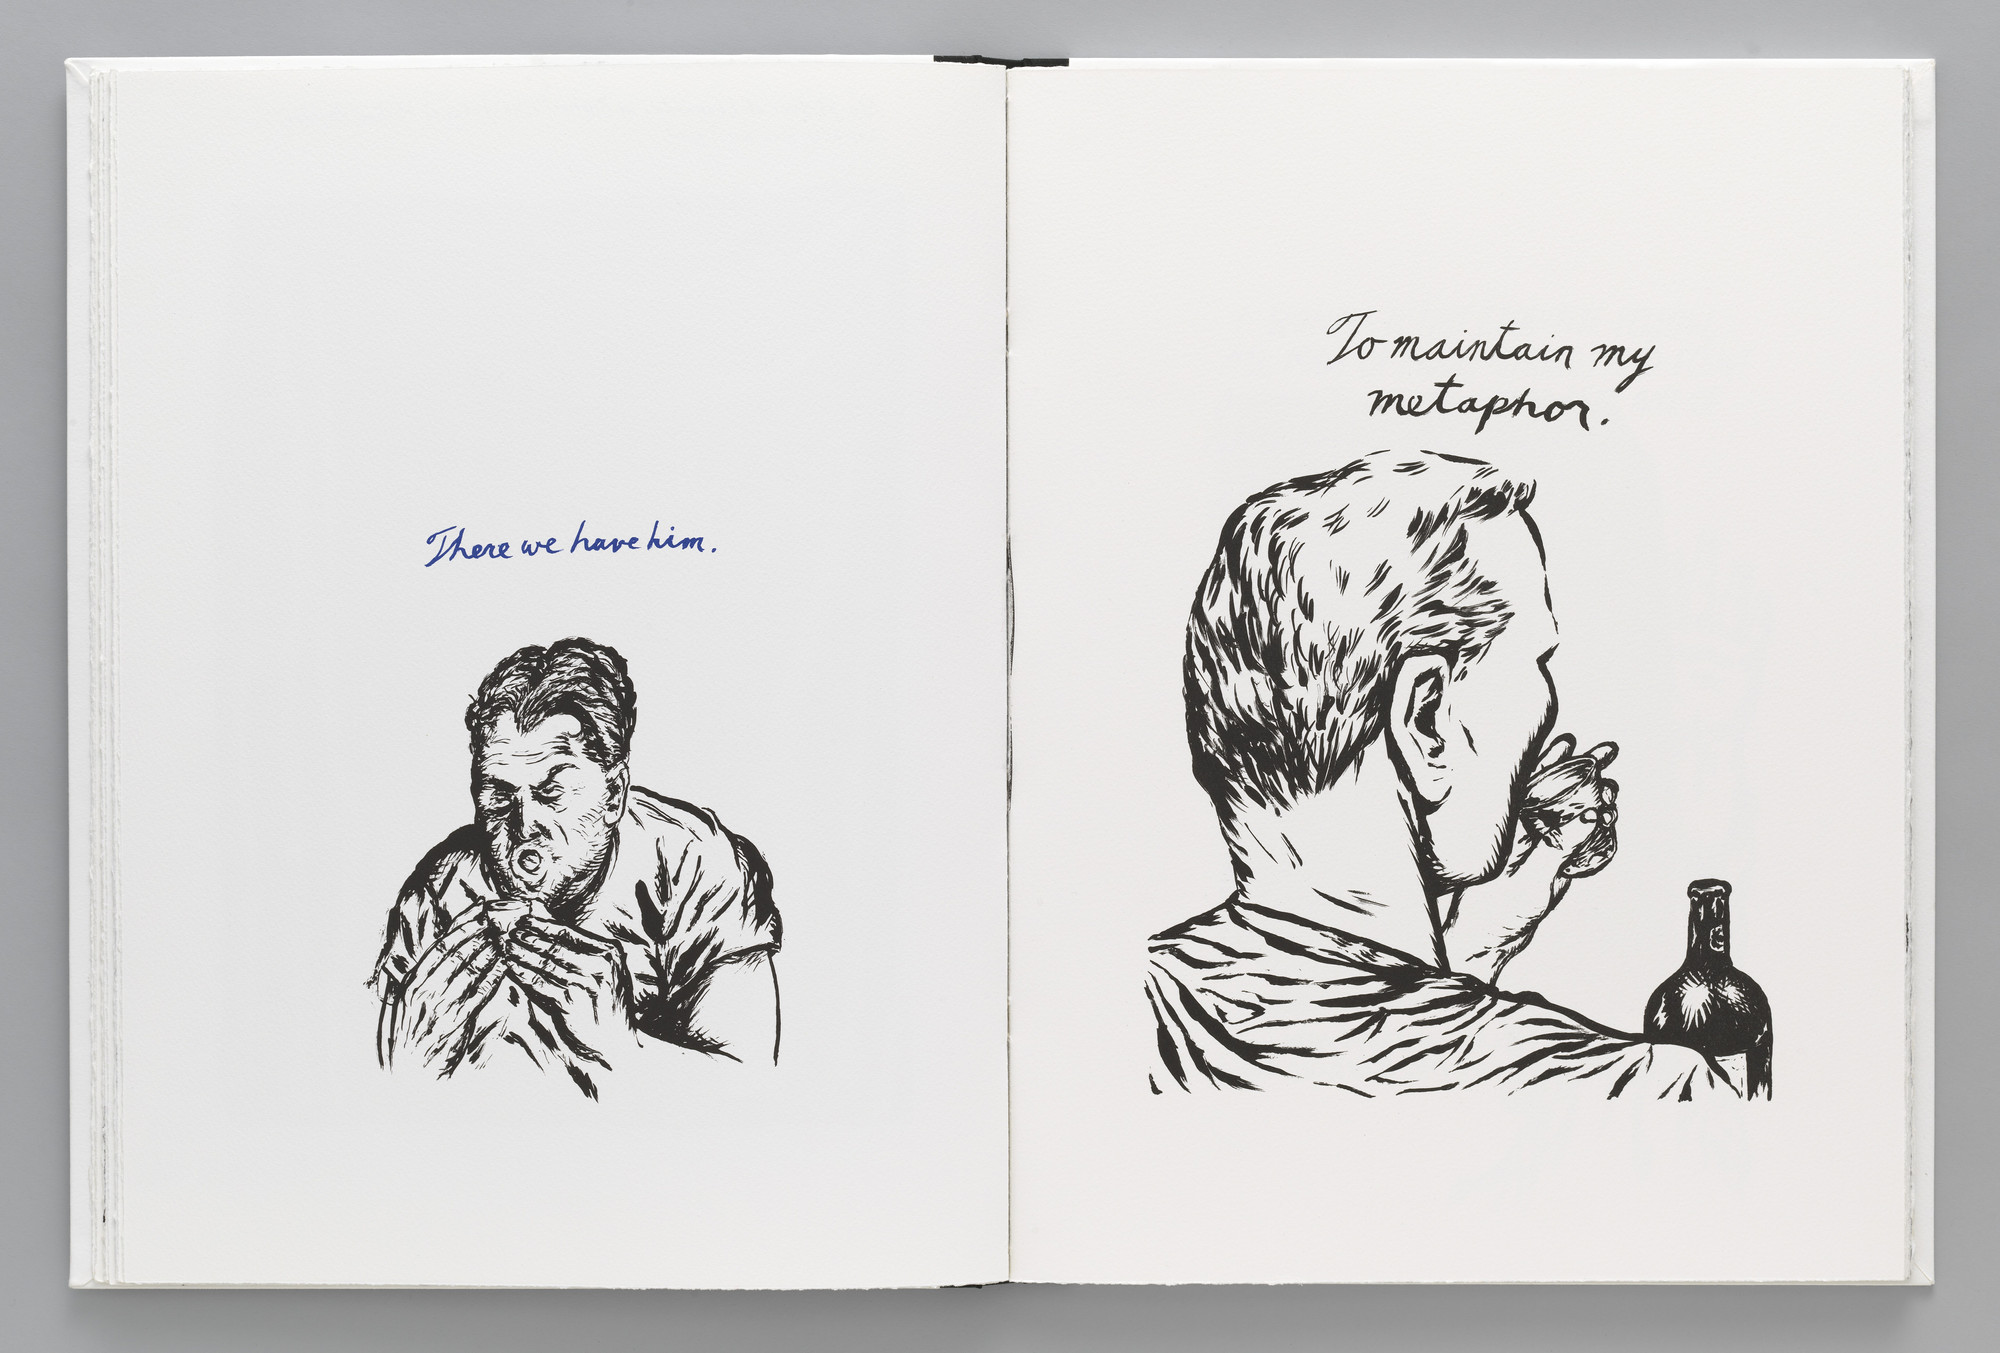 There we have him.
To maintain my
metaphor.